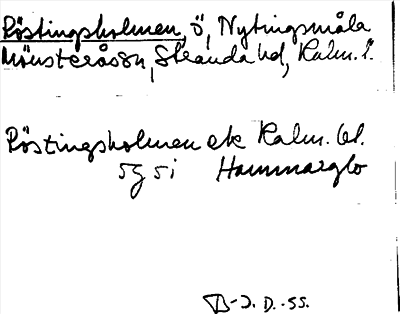 Röstingsholmen, ö, Nytingsmåla
Mönsterås sn, Stranda hd, Kalm. l.
Röstingsholmen ek Kalm. bl.
5g 5i Hammarglo
-J. D. -55.